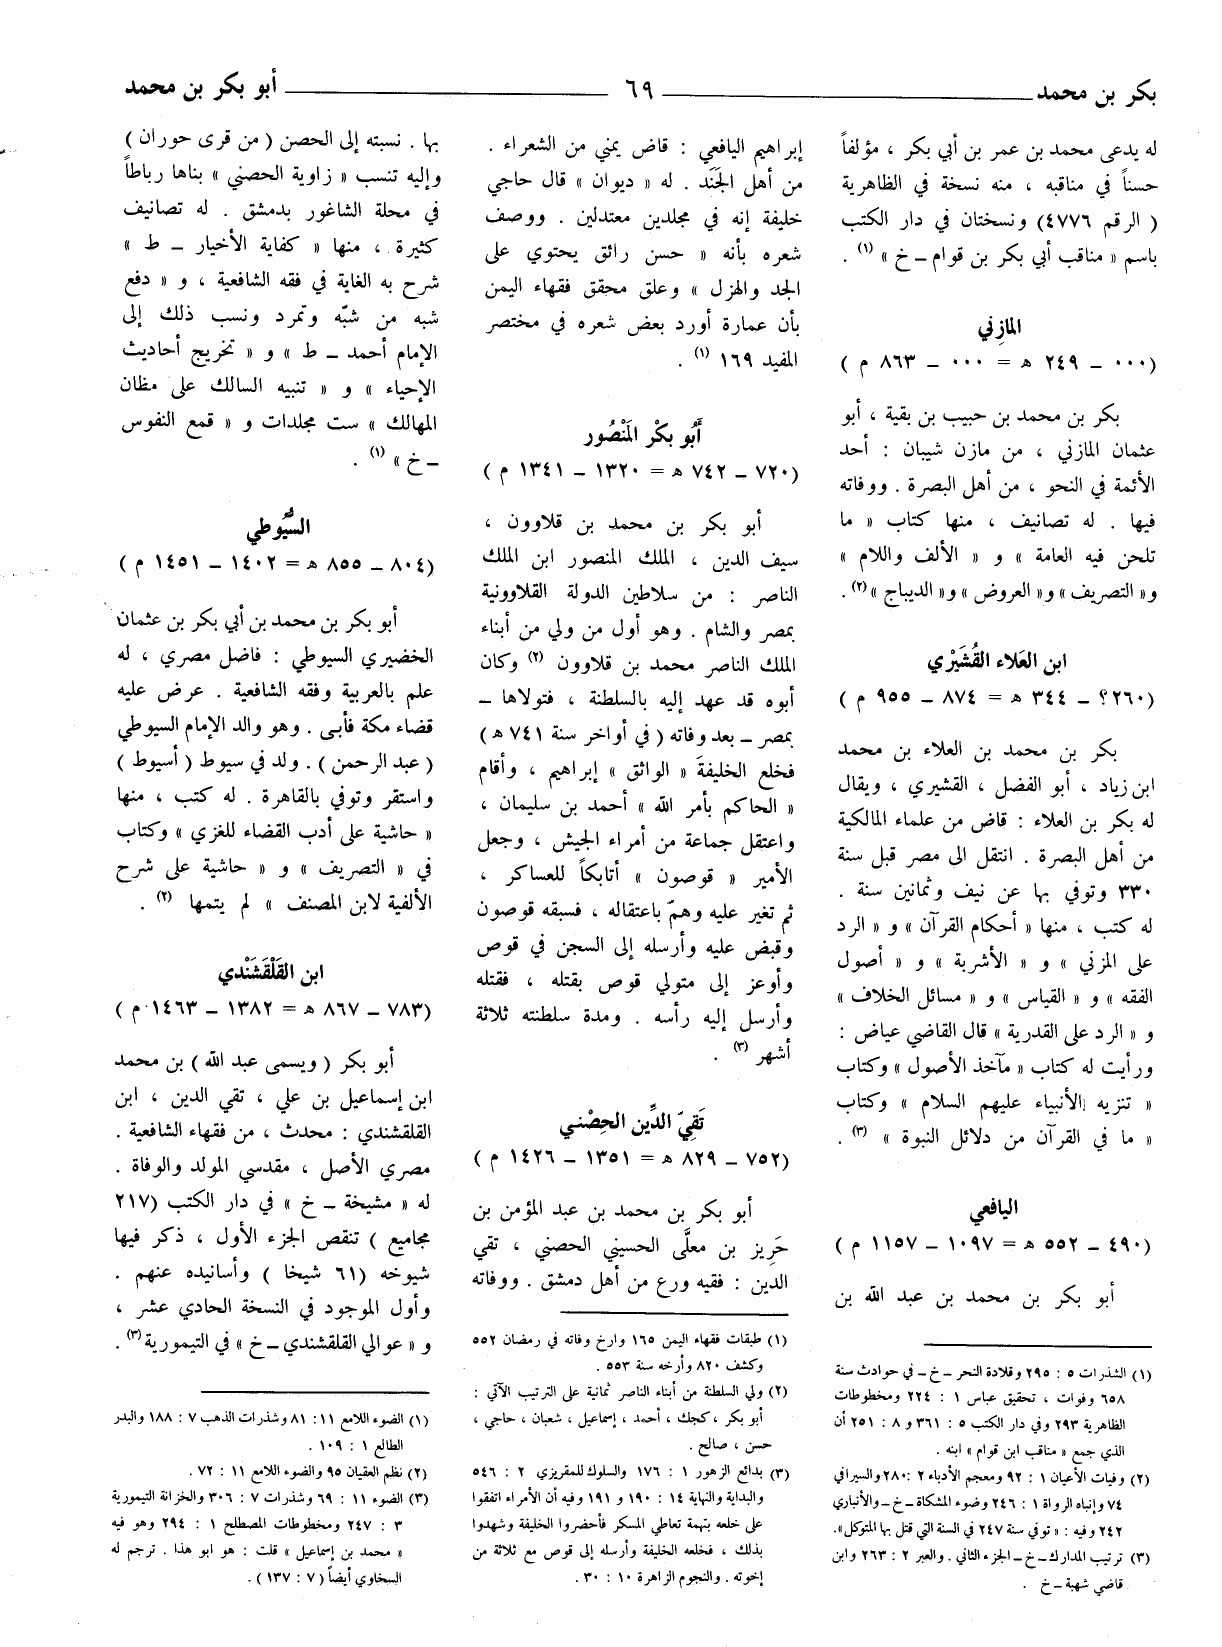 بكر بن محمد
٦٩
أبو بكر بن محمد
له يدعى محمد بن عمر بن أبي بكر ، مؤلفاً
حسناً في مناقبه ، منه نسخة في الظاهرية
( الرقم ٤٧٧٦) ونسختان في دار الكتب
باسم « مناقب أبي بكر بن قوام ــ خ » (١) .
المازِني
(٠٠٠ ــ ٢٤٩ ه = ٠٠٠ ــ ٨٦٣ م )
بكر بن محمد بن حبيب بن بقية ، أبو
عثمان المازني ، من مازن شيبان : أحد
الأئمة في النحو ، من أهل البصرة . ووفاته
فيها . له تصانيف ، منها كتاب « ما
تلحن فيه العامة » و « الألف واللام »
و« التصريف » و« العروض » و« الديباج »(٢).
ابن العَلاء القُشَيْري
(٢٦٠؟ ــ ٣٤٤ ه = ٨٧٤ ــ ٩٥٥ م )
بكر بن محمد بن العلاء بن محمد
ابن زياد ، أبو الفضل ، القشيري ، ويقال
له بكر بن العلاء : قاض من علماء المالكية
من أهل البصرة . انتقل الى مصر قبل سنة
٣٣٠ وتوفي بها عن نيف وثمانين سنة .
له كتب ، منها « أحكام القرآن » و « الرد
على المزني » و « الأشربة » و « أصول
الفقه » و « القياس » و « مسائل الخلاف »
و « الرد على القدرية » قال القاضي عياض :
ورأيت له كتاب « مآخذ الأصول » وكتاب
« تنزيه الأنبياء عليهم السلام » وكتاب
« ما في القرآن من دلائل النبوة » (٣).
اليافعي
(٤٩٠ ــ ٥٥٢ ه = ١٠٩٧ ــ ١١٥٧ م )
أبو بكر بن محمد بن عبد الله بن
(١) الشذرات ٥ : ٢٩٥ وقلادة النحر ــ خ ــ في حوادث سنة
٦٥٨ وفوات ، تحقيق عباس ١ : ٢٢٤ ومخطوطات
الظاهرية ٢٩٣ وفي دار الكتب ٥ : ٣٦١ و ٨ : ٢٥١ أن
الذي جمع « مناقب ابن قوام » ابنه .
(٢) وفيات الأعيان ١ : ٩٢ ومعجم الأدباء ٢ : ٢٨٠ والسيرافي
٧٤ وإنباه الرواة ١ : ٢٤٦ وضوء المشكاة ــ خ ــ والأنباري
٢٤٢ وفيه : « توفي سنة ٢٤٧ في السنة التي قتل بها المتوكل».
(٣) ترتيب المدارك ــ خ ــ الجزء الثاني . والعبر ٢ : ٢٦٣ وابن
قاضي شهبة ــ خ .
إبراهيم اليافعي : قاض يمني من الشعراء .
من أهل الجَنَد . له « ديوان » قال حاجي
خليفة إنه في مجلدين معتدلين . ووصف
شعره بأنه « حسن رائق يحتوي على
الجد والهزل » وعلق محقق فقهاء اليمن
بأن عمارة أورد بعض شعره في مختصر
المفيد ١٦٩ (١) .
أَبُو بكْر المَنْصُور
(٧٢٠ ــ ٧٤٢ ه = ١٣٢٠ ــ ١٣٤١ م )
أبو بكر بن محمد بن قلاوون ،
سيف الدين ، الملك المنصور ابن الملك
الناصر : من سلاطين الدولة القلاوونية
بمصر والشام . وهو أول من ولي من أبناء
الملك الناصر محمد بن قلاوون (٢) وكان
أبوه قد عهد إليه بالسلطنة ، فتولاها ــ
بمصر ــ بعد وفاته ( في أواخر سنة ٧٤١ ه )
فخلع الخليفةَ « الواثق » إبراهيم ، وأقام
« الحاكم بأمر الله » أحمد بن سليمان ،
واعتقل جماعة من أمراء الجيش ، وجعل
الأمير « قوصون » أتابكاً للعساكر ،
ثم تغير عليه وهمّ باعتقاله ، فسبقه قوصون
وقبض عليه وأرسله إلى السجن في قوص
وأوعز إلى متولي قوص بقتله ، فقتله
وأرسل إليه رأسه . ومدة سلطنته ثلاثة
أشهر (٣) .
تَقِيّ الدِّين الحِصْني
(٧٥٢ ــ ٨٢٩ ه = ١٣٥١ ــ ١٤٢٦ م )
أبو بكر بن محمد بن عبد المؤمن بن
حَرِيز بن معلَّى الحسيني الحصني ، تقي
الدين : فقيه ورع من أهل دمشق . ووفاته
(١) طبقات فقهاء اليمن ١٦٥ وارخ وفاته في رمضان ٥٥٢
وكشف ٨٢٠ وأرخه سنة ٥٥٣ .
(٢) ولي السلطنة من أبناء الناصر ثمانية على الترتيب الآتي :
أبو بكر ، كجك ، أحمد ، إسماعيل ، شعبان ، حاجي ،
حسن ، صالح .
(٣) بدائع الزهور ١ : ١٧٦ والسلوك للمقريزي ٢ : ٥٤٦
والبداية والنهاية ١٤ : ١٩٠ و ١٩١ وفيه أن الأمراء اتفقوا
على خلعه بتهمة تعاطي المسكر فأحضروا الخليفة وشهدوا
بذلك ، فخلعه الخليفة وأرسله إلى قوص مع ثلاثة من
إخوته . والنجوم الزاهرة ١٠ : ٣٠ .
بها . نسبته إلى الحصن ( من قرى حوران )
وإليه تنسب « زاوية الحصني » بناها رباطاً
في محلة الشاغور بدمشق . له تصانيف
كثيرة ، منها « كفاية الأخيار ــ ط »
شرح به الغاية في فقه الشافعية ، و « دفع
شبه من شبّه وتمرد ونسب ذلك إلى
الإمام أحمد ــ ط » و « تخريج أحاديث
الإحياء » و « تنبيه السالك على مظان
المهالك » ست مجلدات و « قمع النفوس
ــ خ » (١) .
السُّيُوطي
(٨٠٤ ــ ٨٥٥ ه = ١٤٠٢ ــ ١٤٥١ م )
أبو بكر بن محمد بن أبي بكر بن عثمان
الخضيري السيوطي : فاضل مصري ، له
علم بالعربية وفقه الشافعية . عرض عليه
قضاء مكة فأبى . وهو والد الإمام السيوطي
( عبد الرحمن ) . ولد في سيوط ( أسيوط )
واستقر وتوفي بالقاهرة . له كتب ، منها
« حاشية على أدب القضاء للغزي » وكتاب
في « التصريف » و « حاشية على شرح
الألفية لابن المصنف » لم يتمها (٢) .
ابن القَلْقَشَنْدي
(٧٨٣ ــ ٨٦٧ ه = ١٣٨٢ ــ ١٤٦٣ م )
أبو بكر ( ويسمى عبد الله ) بن محمد
ابن إسماعيل بن علي ، تقي الدين ، ابن
القلقشندي : محدث ، من فقهاء الشافعية .
مصري الأصل ، مقدسي المولد والوفاة .
له « مشيخة ــ خ » في دار الكتب (٢١٧
مجاميع ) تنقص الجزء الأول ، ذكر فيها
شيوخه (٦١ شيخا ) وأسانيده عنهم .
وأول الموجود في النسخة الحادي عشر ،
و « عوالي القلقشندي ــ خ » في التيمورية(٣) .
(١) الضوء اللامع ١١ : ٨١ وشذرات الذهب ٧ : ١٨٨ والبدر
الطالع ١ : ١٠٩ .
(٢) نظم العقيان ٩٥ والضوء اللامع ١١ : ٧٢ .
(٣) الضوء ١١ : ٦٩ وشذرات ٧ : ٣٠٦ والخزانة التيمورية
٣ : ٢٤٧ ومخطوطات المصطلح ١ : ٢٩٤ وهو فيه
« محمد بن إسماعيل » قلت : هو ابو هذا . ترجم له
السخاوي أيضاً ( ٧ : ١٣٧ ) .